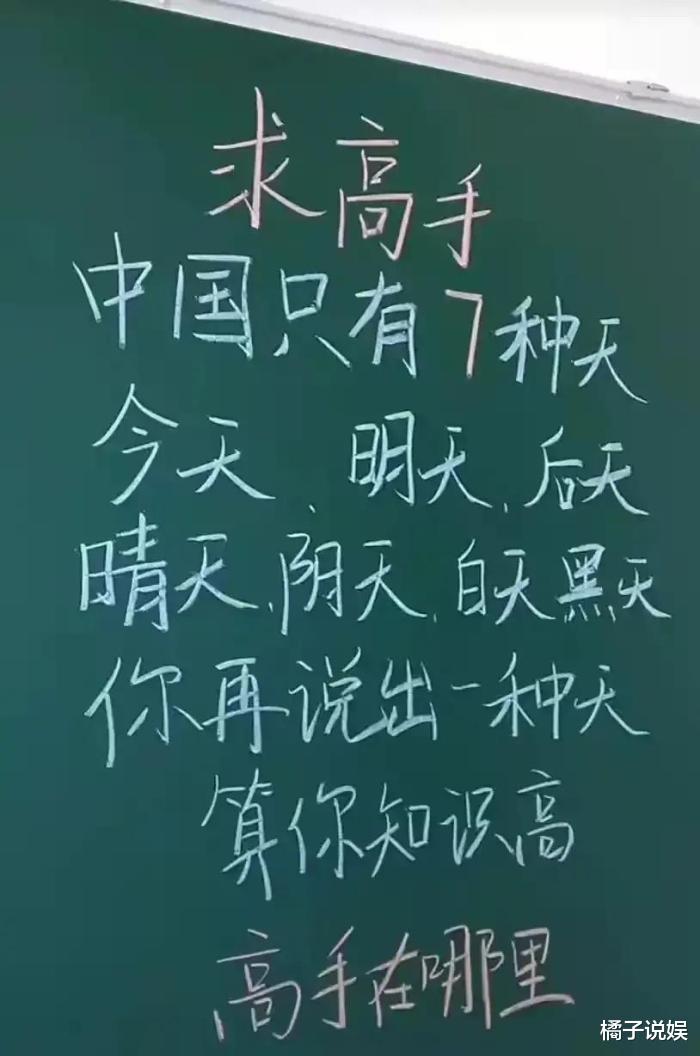 求高手
中国只有7种天
今天、明天、后天
晴天、阴天、白天黑天
你再说出一种天
算你知识高
高手在哪里
橘子说娱